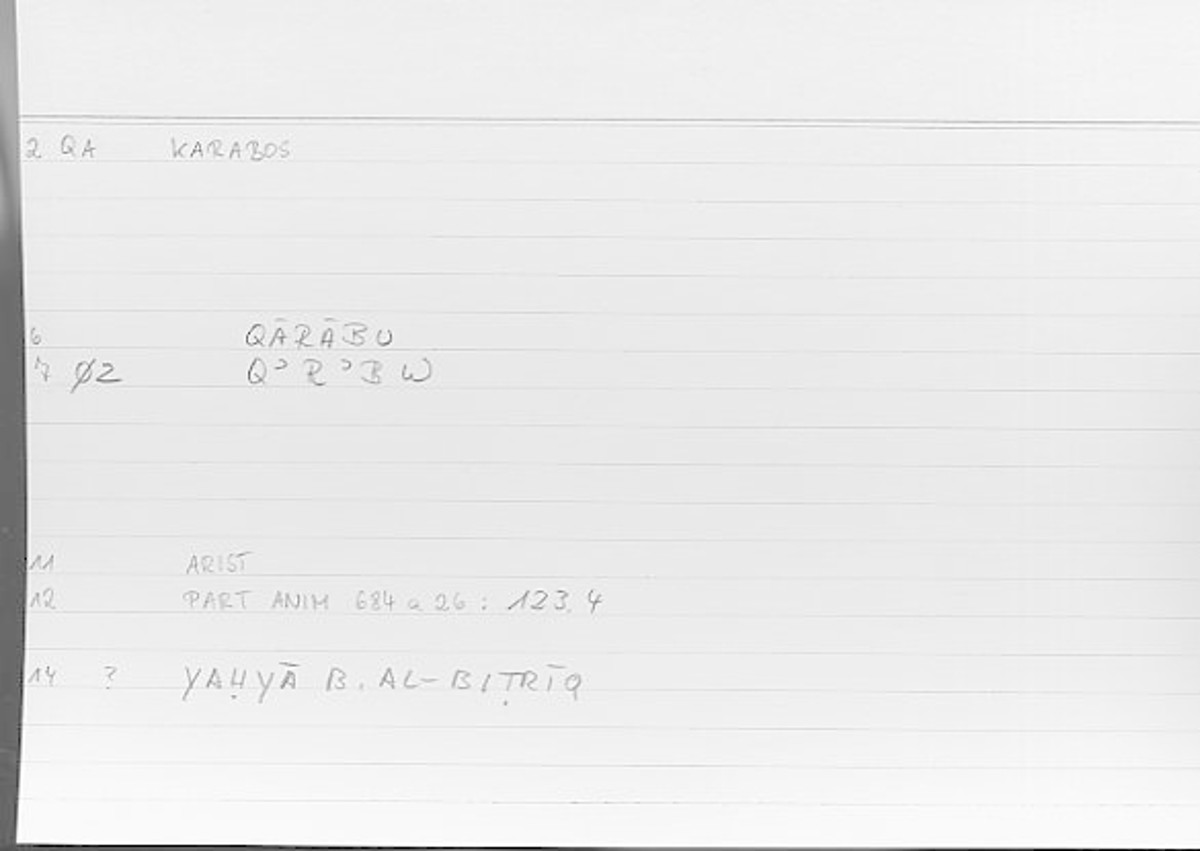 2 QA KARABOS
6 QĀRĀBU
7 Ø2 QʾRʾBW
11 ARIST
12 PART ANIM 684 a 26 : 123.4
14 ? YAḤYĀ B. AL-BIṬRĪQ